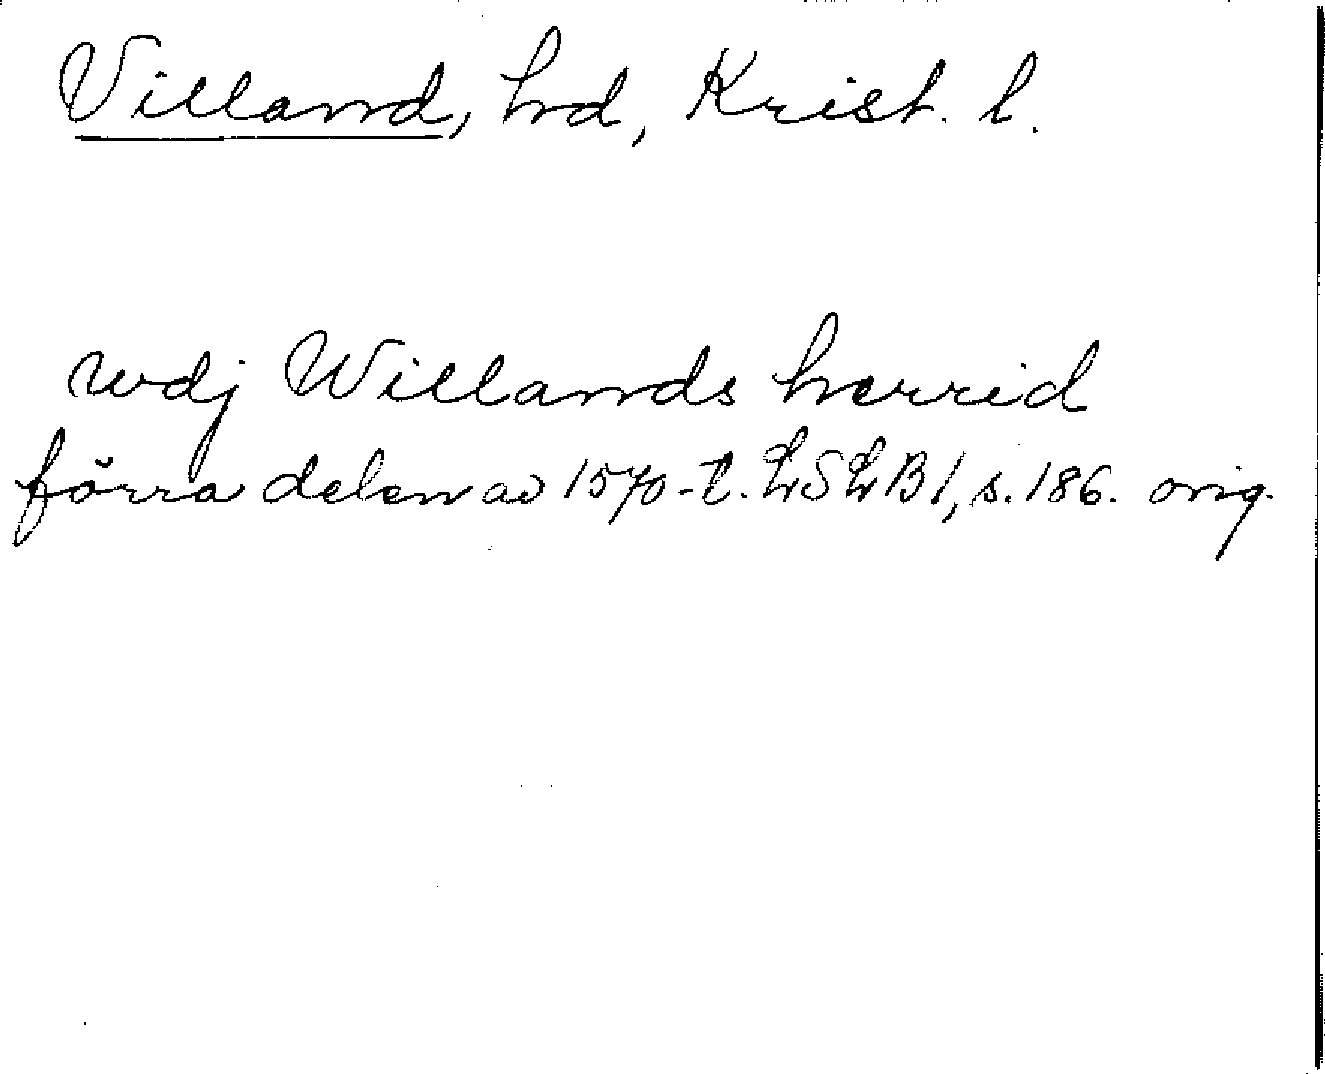 Villand, hd, Krist. l.
udj Willands herrid
förra delen av 1570-t. LSLB1, s. 186. orig.